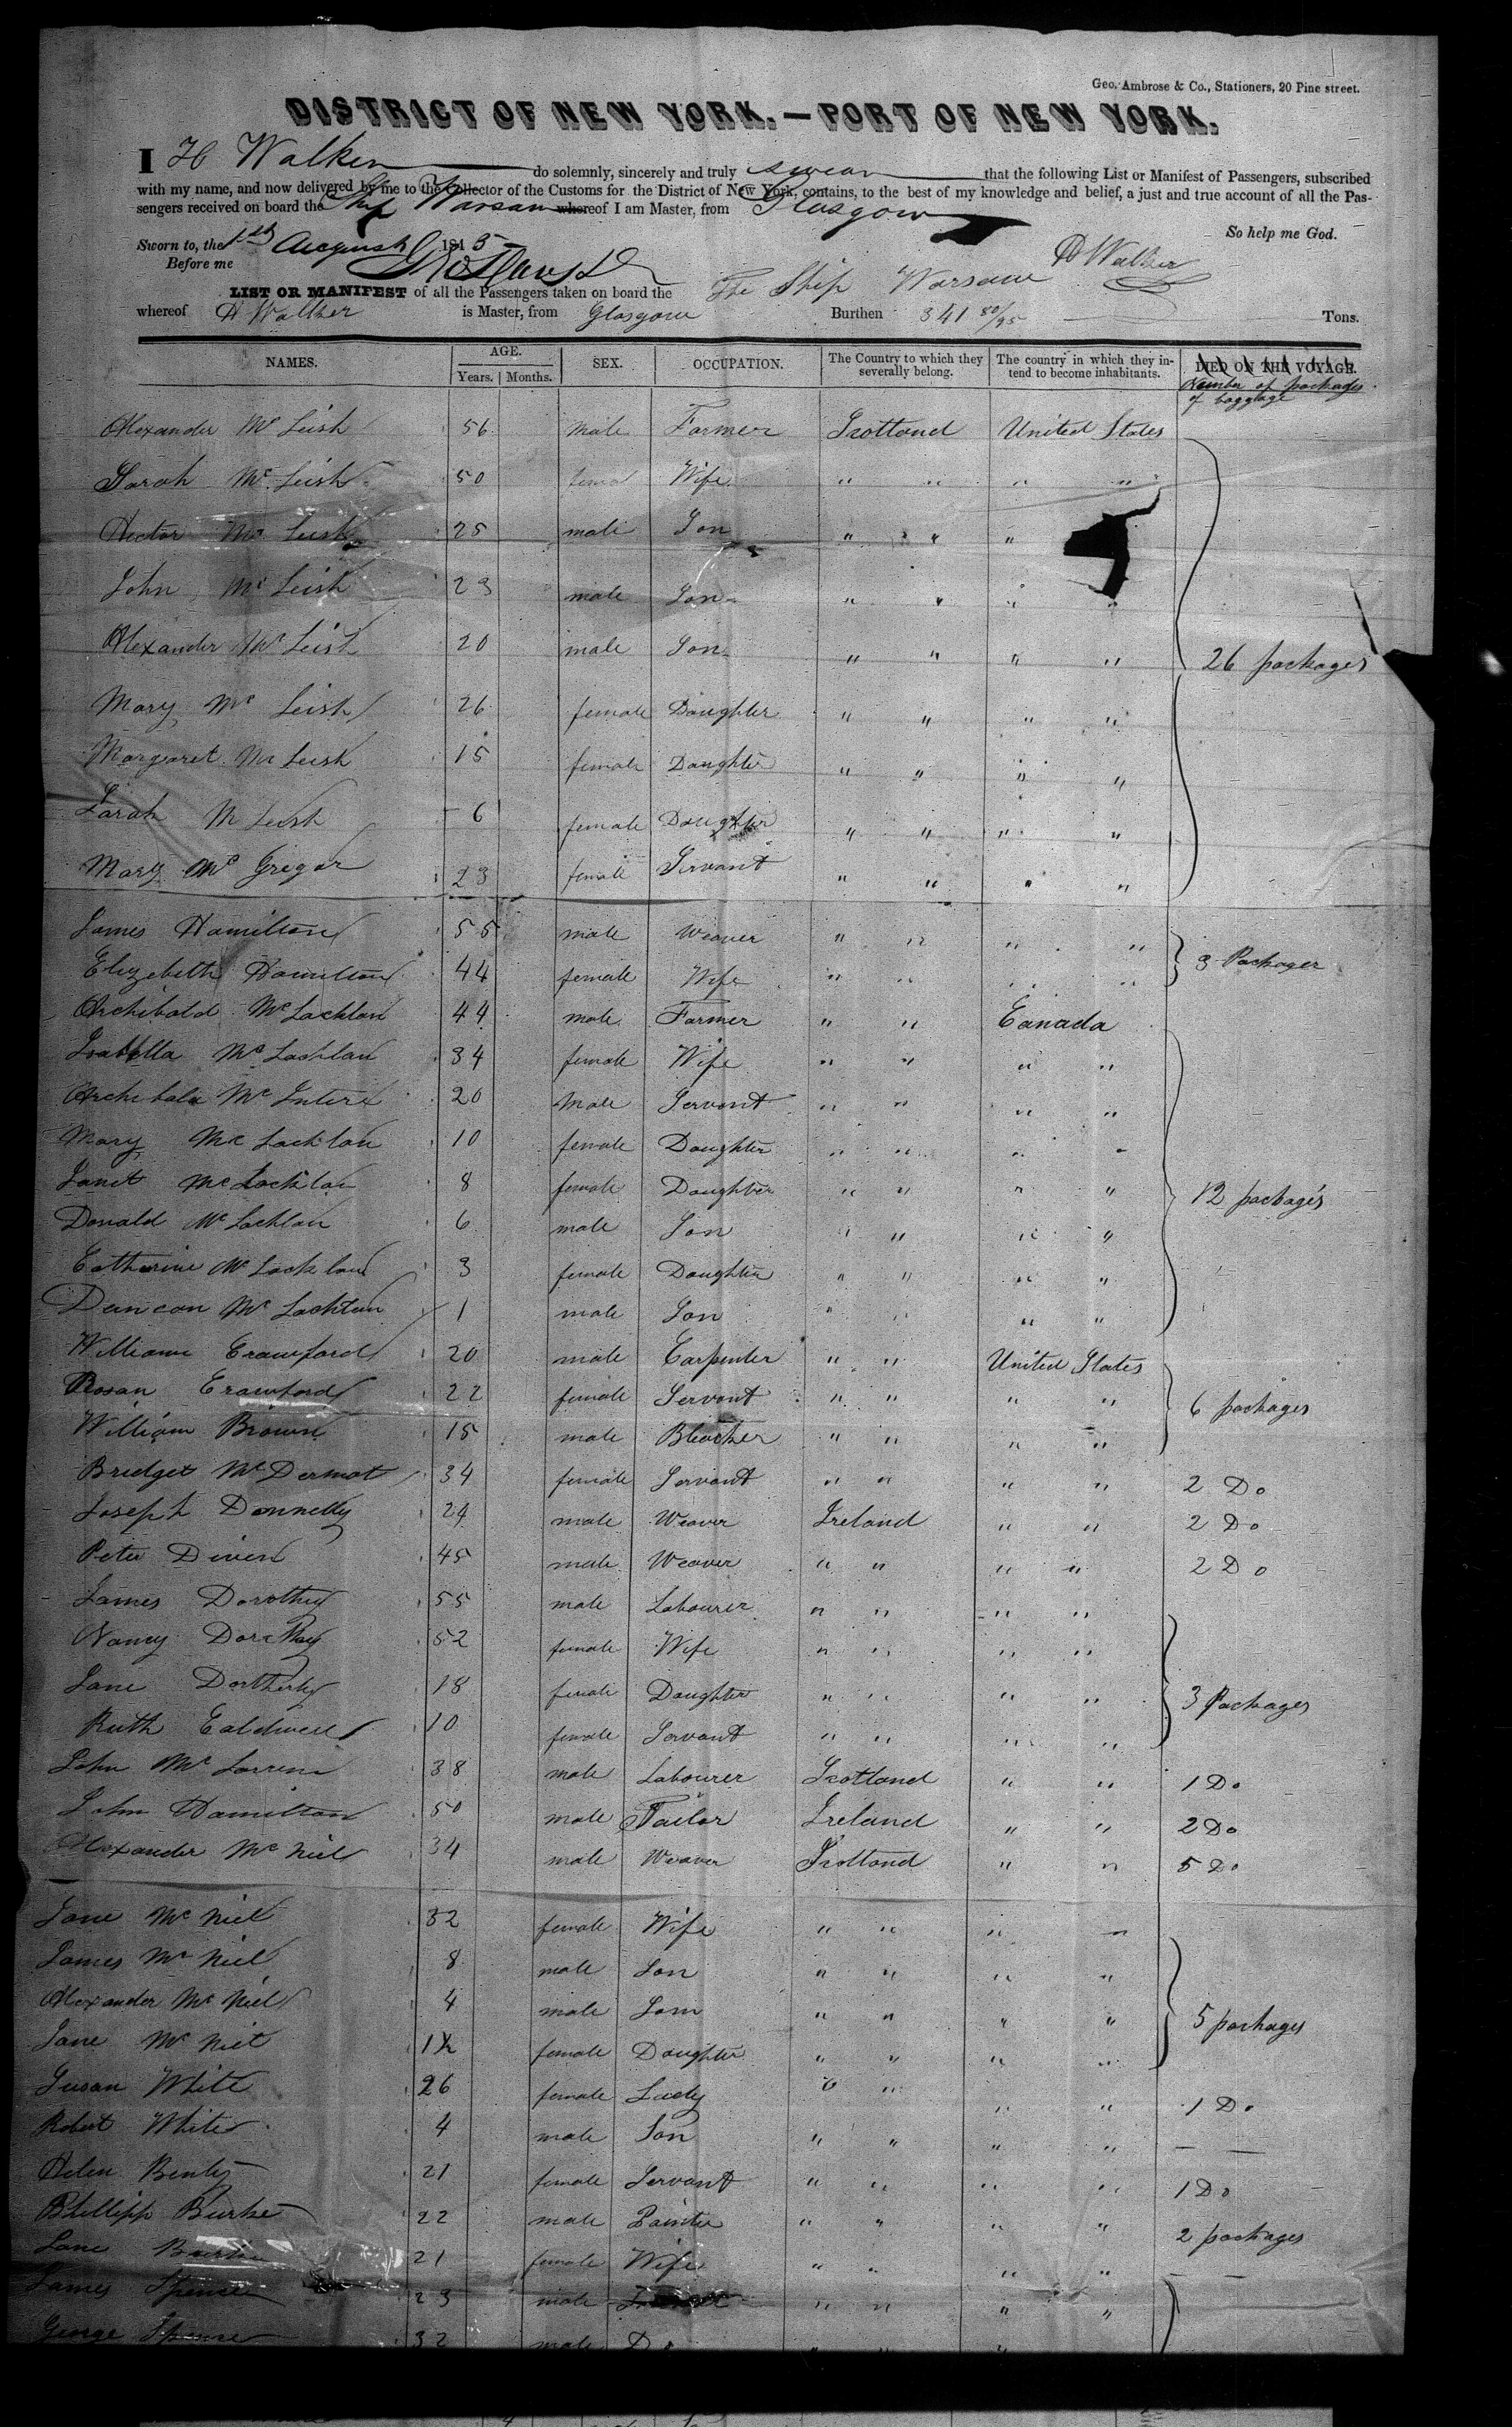 Geo. Ambrose & Co., Stationers, 20 Pine street.
DISTRICT OF NEW YORK.—PORT OF NEW YORK.
I H Walker do solemnly, sincerely and truly swear that the following List or Manifest of Passengers, subscribed
with my name, and now delivered by me to the Collector of the Customs for the District of New York, contains, to the best of my knowledge and belief, a just and true account of all the Pas-
sengers received on board the Ship Warsaw whereof I am Master, from Glasgow
So help me God.
Sworn to, the 1st August 1845
Before me H Walker
LIST OR MANIFEST of all the Passengers taken on board the The Ship Warsaw
whereof H Walker is Master, from Glasgow Burthen 341 80/95 Tons.
NAMES. AGE. Years. Months. SEX. OCCUPATION. The Country to which they severally belong. The country in which they intend to become inhabitants. DIED ON THE VOYAGE.
Number of packages of baggage
Alexander Mc Leish 56 male Farmer Scotland United States
Sarah Mc Leish 50 femal Wife " " " "
Hector Mc Leish 25 male Son " " "
John Mc Leish 23 male Son " " " "
Alexander Mc Leish 20 male Son " " " " 26 packages
Mary Mc Leish 26 female Daughter " " " "
Margaret Mc Leish 15 female Daughter " " " "
Sarah Mc Leish 6 female Daughter " " " "
Mary Mc Gregor 23 female Servant " " " "
James Hamilton 55 male Weaver " " " "
Elizebeth Hamilton 44 female Wife " " " " 3 Packages
Archibald McLachlan 44 male Farmer " " Canada
Isabella Mc Lachlan 34 female Wife " " " "
Archibald Mc 20 Male Servant " " " "
Mary Mc Lachlan 10 female Daughter " " " "
Janet Mc Lachlan 8 female Daughter " " " " 12 packages
Donald Mc Lachlan 6 male Son " " " "
Catherine Mc Lachlan 3 female Daughter " " " "
Duncan Mc Lachlan 1 male Son " " " "
William Crawford 20 male Carpenter " " United States
Rosan Crawford 22 female Servant " " " " 6 packages
William Brown 15 male Bleacher " " " "
Bridget McDermot 34 female Servant " " " " 2 Do
Joseph Donnelly 24 male Weaver Ireland " " 2 Do
Peter Diven 45 male Weaver " " " " 2 Do
James Dorothey 55 male Labourer " " " "
Nancy Dorothey 52 female Wife " " " "
Jane Dortherty 18 female Daughter " " " " 3 Packages
Ruth Caldwell 10 female Servant " " " "
John Mc 38 male Labourer Scotland " " 1 Do
John Hamilton 50 male Tailor Ireland " " 2 Do
Alexander Mc Niel 34 male Weaver Scotland " " 5 Do
Jane Mc Niel 32 female Wife " " " "
James Mc Niel 8 male Son " " " "
Alexander Mc Niel 4 male Son " " " " 5 packages
Jane Mc Niel 1½ female Daughter " " " "
Susan White 26 female Lady " " " " 1 Do
Robert White 4 male Son " " " " — —
Helen Bently 21 female Servant " " " " 1 Do
Phillipp Burke 22 male Painter " " " " 2 packages
Jane Burke 21 female Wife " " " " — —
James Spence 23 male " " " "
George Spence 32 male Do " " "